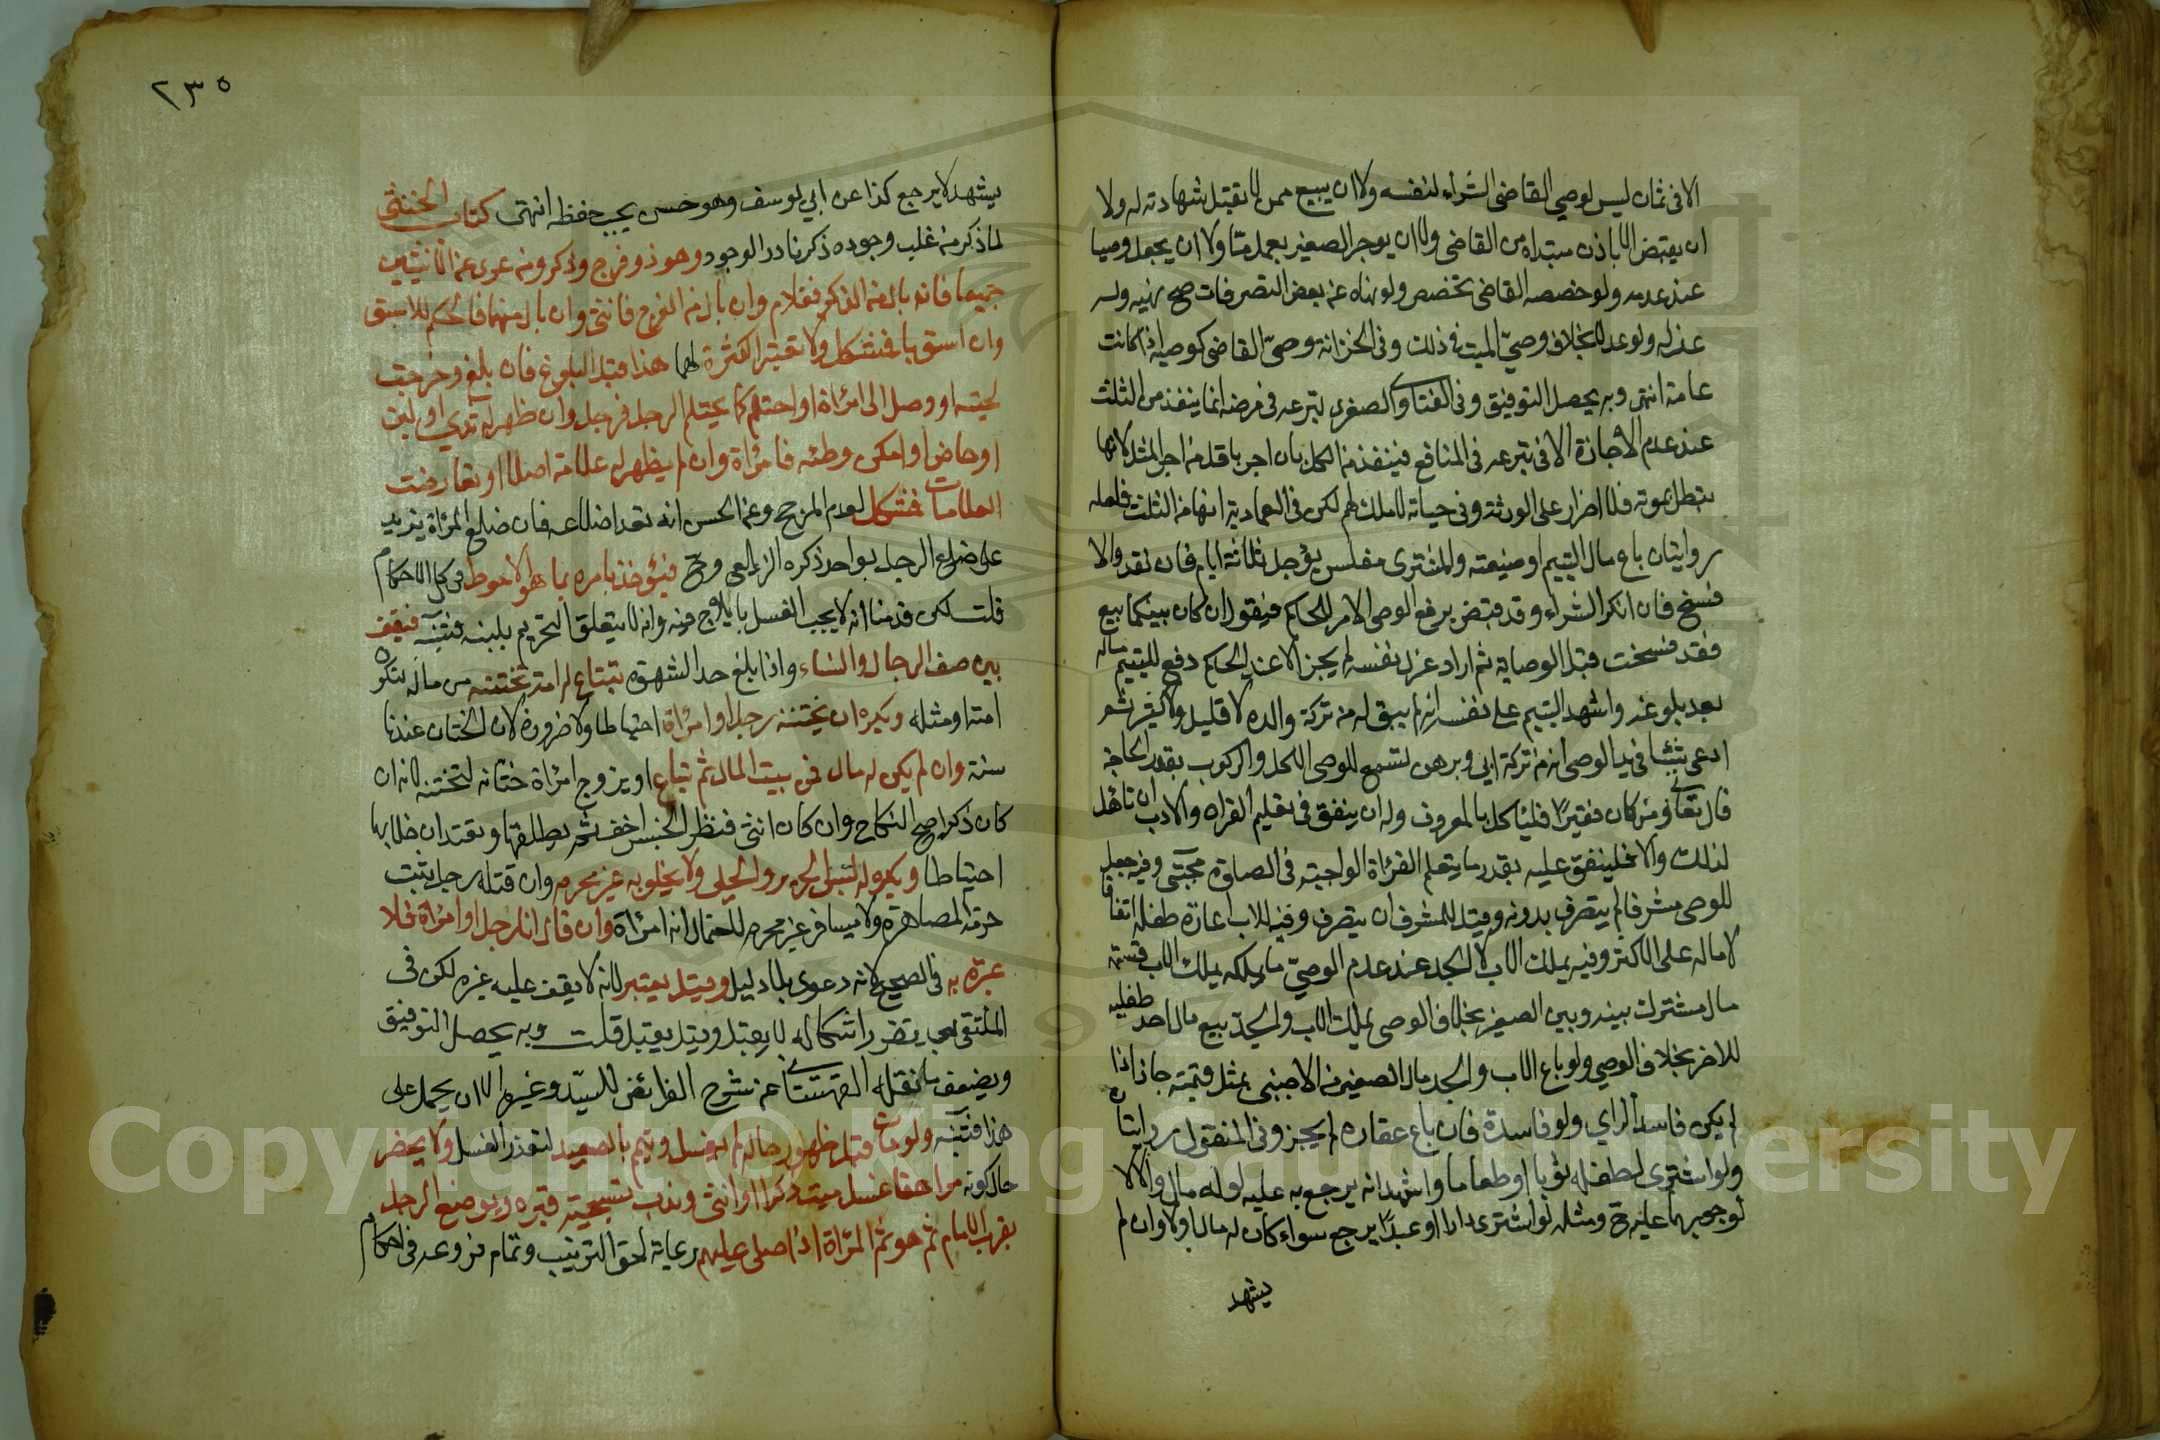 الا في ثمان ليس لوصي القاضي الشراء لنفسه ولا ان يبيع ممن لا تقبل شهادته له ولا
ان يقبض الا باذن مبتداء من القاضي ولا ان يوجر الصغير بعمل ما ولا ان يجعل وصيا
عند عدمه ولو خصصه القاضي تخصص ولو نهاه عن بعض التصرفات صح نهيه وله
عزله ولو عدلا بخلاف وصي الميت في ذلك وفي الخزانة وصي القاضي كوصيه اذا كانت
عامة انتهى وبه يحصل التوفيق وفي الفتاوى الصغرى تبرعه في مرضه انما ينفذ من الثلث
عند عدم الاجازة الا في تبرعه في المنافع فينفذ من الكل بان اجر باقل من اجر المثل لانها
تبطل بموته فلا اضرار على الورثة وفي حياته لا ملك لهم لكن في العمادية انها من الثلث فلعله
روايتان باع مال اليتيم او ضيعته والمشتري مفلس يؤجل ثلاثة ايام فان نقد والا
فسخ فان انكر الشراء وقد قبض يرفع الوصي الامر للحاكم فيقول ان كان بينكما بيع
فقد فسخت قبل الوصاية ثم اراد عزل نفسه لم يجز الا عند الحاكم دفع لليتيم ماله
بعد بلوغه واشهد اليتيم على نفسه انه لم يبق له من تركة والده لا قليل ولا كثير ثم
ادعى شيئا في يد الوصي انه من تركة ابي وبرهن تسمع للوصي الاكل والركوب بقدر الحاجة
قال تعالى ومن كان فقيرا فلياكل بالمعروف وله ان ينفق في تعليم القران والادب ان تاهل
لذلك والا فلينفق عليه بقدر ما يتعلم القراة الواجبة في الصلوة مجتبى وفيه جعل
للوصي مشرفا لم يتصرف بدونه وقيل للمشرف ان يتصرف وفيه للاب اعارة طفله اتفاقا
لا ماله على الاكثر وفيه يملك الاب لا الجد عند عدم الوصي ما يملكه يملك الاب قسمة
مال مشترك بينه وبين الصغير بخلاف الوصي يملك الاب والجد بيع مال احد طفليه
للاخر بخلاف الوصي ولو باع الاب والجد مال الصغير من الاجنبي بمثل قيمته جاز اذا
لم يكن فاسد الراي ولو فاسدة فان باع عقاره لم يجز وفي المنقول روايتان
ولو اشترى لطفله ثوبا او طعاما واشهد انه يرجع به عليه لو له مال والا لا
لوجوبهما عليه ح ومثله لو اشترى دارا او عبدا يرجع سواء كان له مال اولا وان لم
يشهد
٢٣٥
يشهد لا يرجع كذا عن ابي يوسف وهو حسن يجب حفظه انتهى كتاب الخنثى
لما ذكر من غلب وجوده ذكر نادر الوجود وهو ذو فرج وذكر ومن عرى عن الاثنين
جميعا فان بال من الذكر فغلام وان بال من الفرج فانثى وان بال منهما فالحكم للاسبق
وان استويا فمشكل ولا تعتبر الكثرة لهما هذا قبل البلوغ فان بلغ وخرجت
لحيته او وصل الى امراة او احتلم كما يحتلم الرجل فرجل وان ظهر له ثدي او لبن
او حاض او امكن وطئه فامراة وان لم يظهر له علامة اصلا او تعارضت
العلامات فمشكل لعدم المرجح وعن الحسن انه تعد اضلاعه فان ضلع المراة يزيد
على ضلع الرجل بواحد ذكره الزيلعي وح فيؤخذ بامره بما هو الاحوط في كل الاحكام
قلت لكن قدمنا انه لا يجب الغسل بايلاج فيه وانه لا يتعلق التحريم بلبنه فتنبه فيقف
بين صف الرجال والنساء واذا بلغ حد الشهوة تبتاع له امة تختنه من ماله لتكون
امته او مثله ويكره ان يختنه رجل او امراة احتياطا ولا ضرورة لان الختان عندنا
سنة وان لم يكن له مال فمن بيت المال ثم تباع او يزوج امراة ختانة لتختنه لانه ان
كان ذكرا صح النكاح وان كان انثى فنظر الجنس اخف ثم يطلقها وتعتد ان خلا بها
احتياطا ويكره له لبس الحرير والحلي ولا يخلو به غير محرم وان قبله رجل يثبت
حرمة المصاهرة ولا يسافر غير محرم لاحتمال انه امراة وان قال انا رجل او امراة فلا
عبرة به في الصحيح لانه دعوى بلا دليل وقيل يعتبر لانه لا يقف عليه غيره لكن في
الملتقى بعد تقرر اشكاله لا يقبل وقبله يقبل قلت وبه يحصل التوفيق
ويضعف ما نقله القهستاني عن شرح الفرائض للسيد وغيره الا ان يحمل على
هذا فتنبه ولو مات قبل ظهور حاله لم يغسل ويتيم بالصعيد لتعذر الغسل ولا يحضر
حال كونه مراهقا غسل ميت ذكرا او انثى وندب تسجية قبره ويوضع الرجل
بقرب الامام ثم هو ثم المراة اذا صلى عليهم رعاية لحق الترتيب وتمام فروعه في احكام